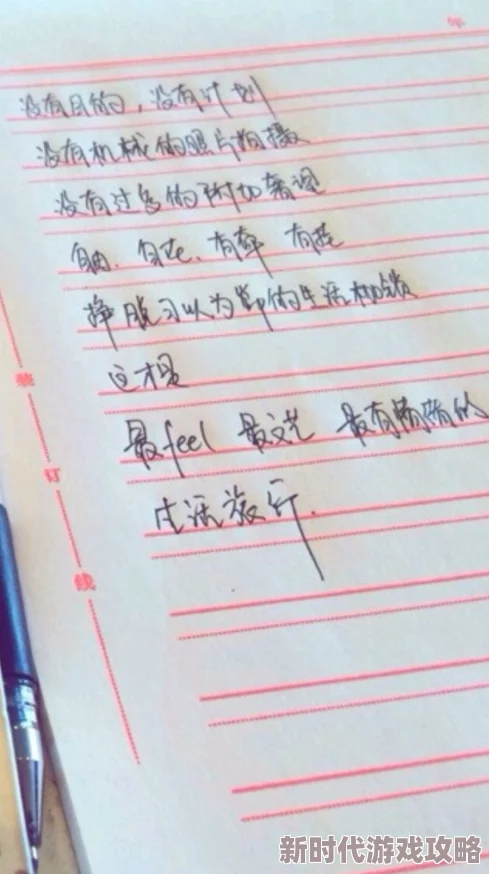 没有目的，没有计划
没有机械的照片拍摄
没有过多的附加奢望
自由、自在、有奔 有
挣脱习以为常的生活枷锁
这才是
最feel 最文艺 最有情的
生活旅行.
装
订
线
新时代游戏攻略